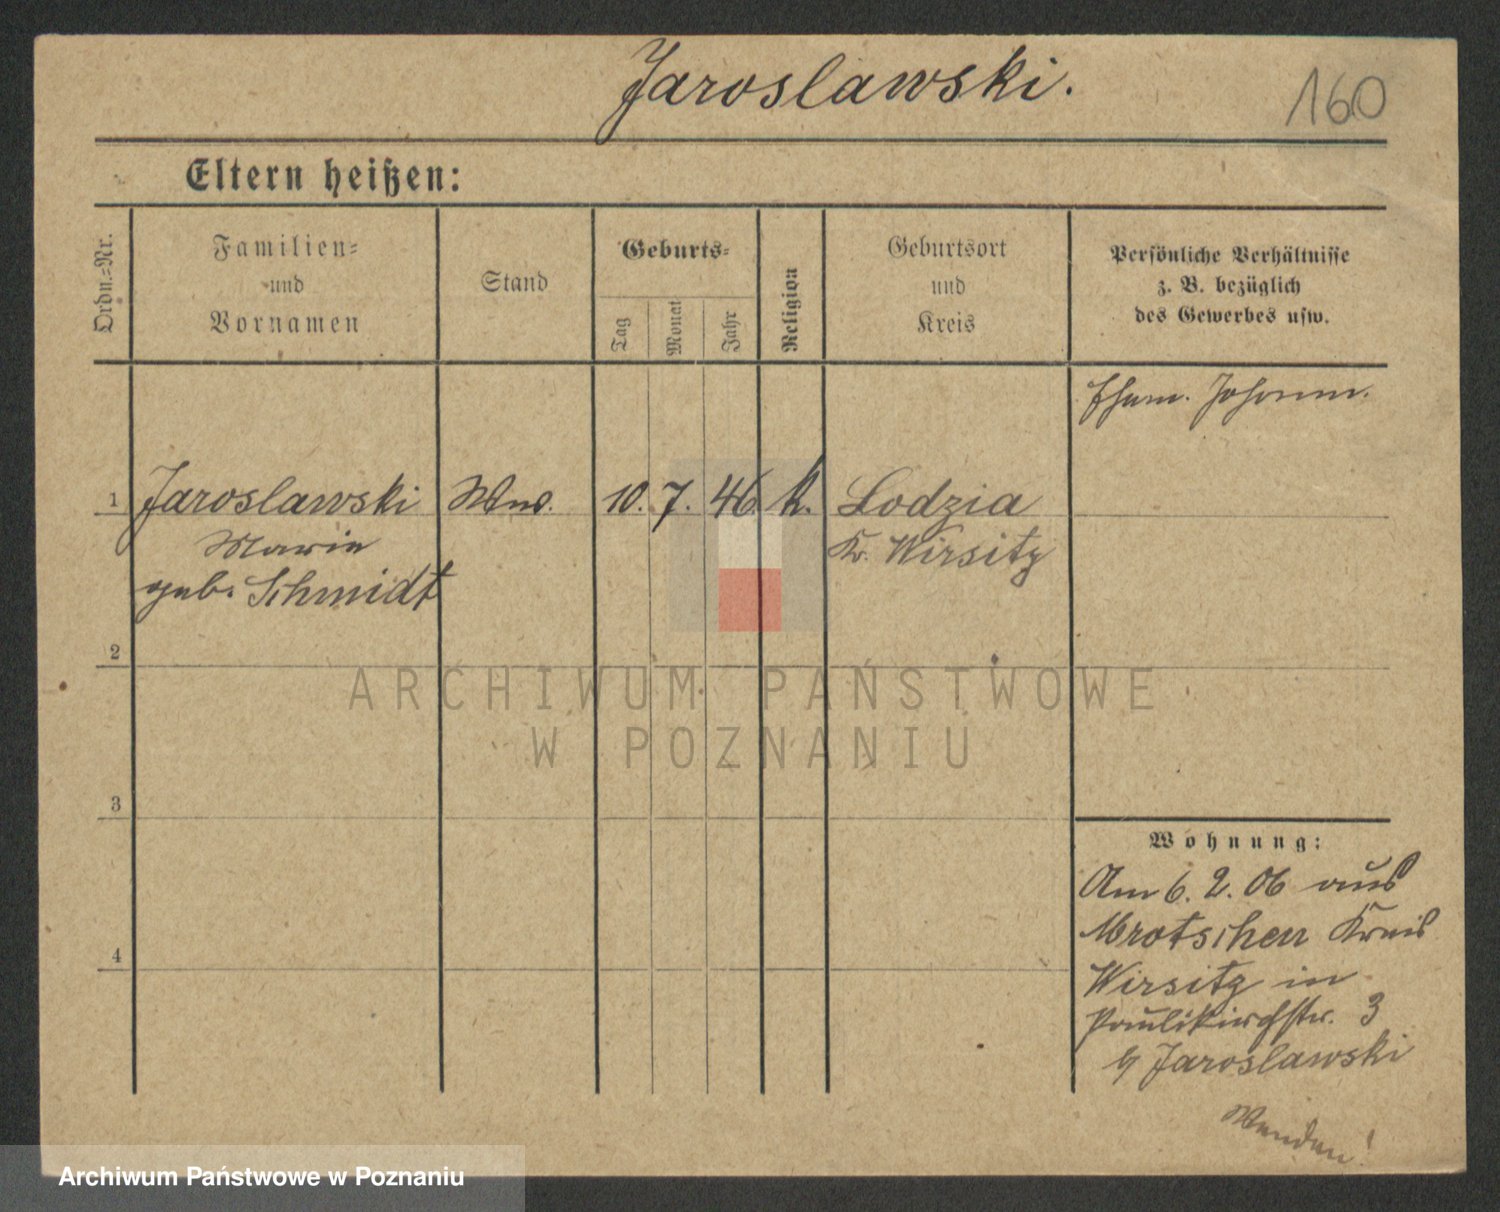 Jaroslawski.
160
Eltern heißen:
Ordn.=Nr.
Familien=
und
Vornamen
Stand
Geburts=
Tag
Monat
Jahr
Religion
Geburtsort
und
Kreis
Persönliche Verhältnisse
z. B. bezüglich
des Gewerbes usw.
Ehem. Johann.
1 Jaroslawski Wwe. 10. 7. 46. k. Lodzia
Marie Kr. Wirsitz
geb. Schmidt
2
ARCHIWUM PAŃSTWOWE
W POZNANIU
3
Wohnung:
Am 6. 2. 06 aus
Mrotschen Kreis
4
Wirsitz in
Paulikirchstr. 3
b/ Jaroslawski
Wenden!
Archiwum Państwowe w Poznaniu